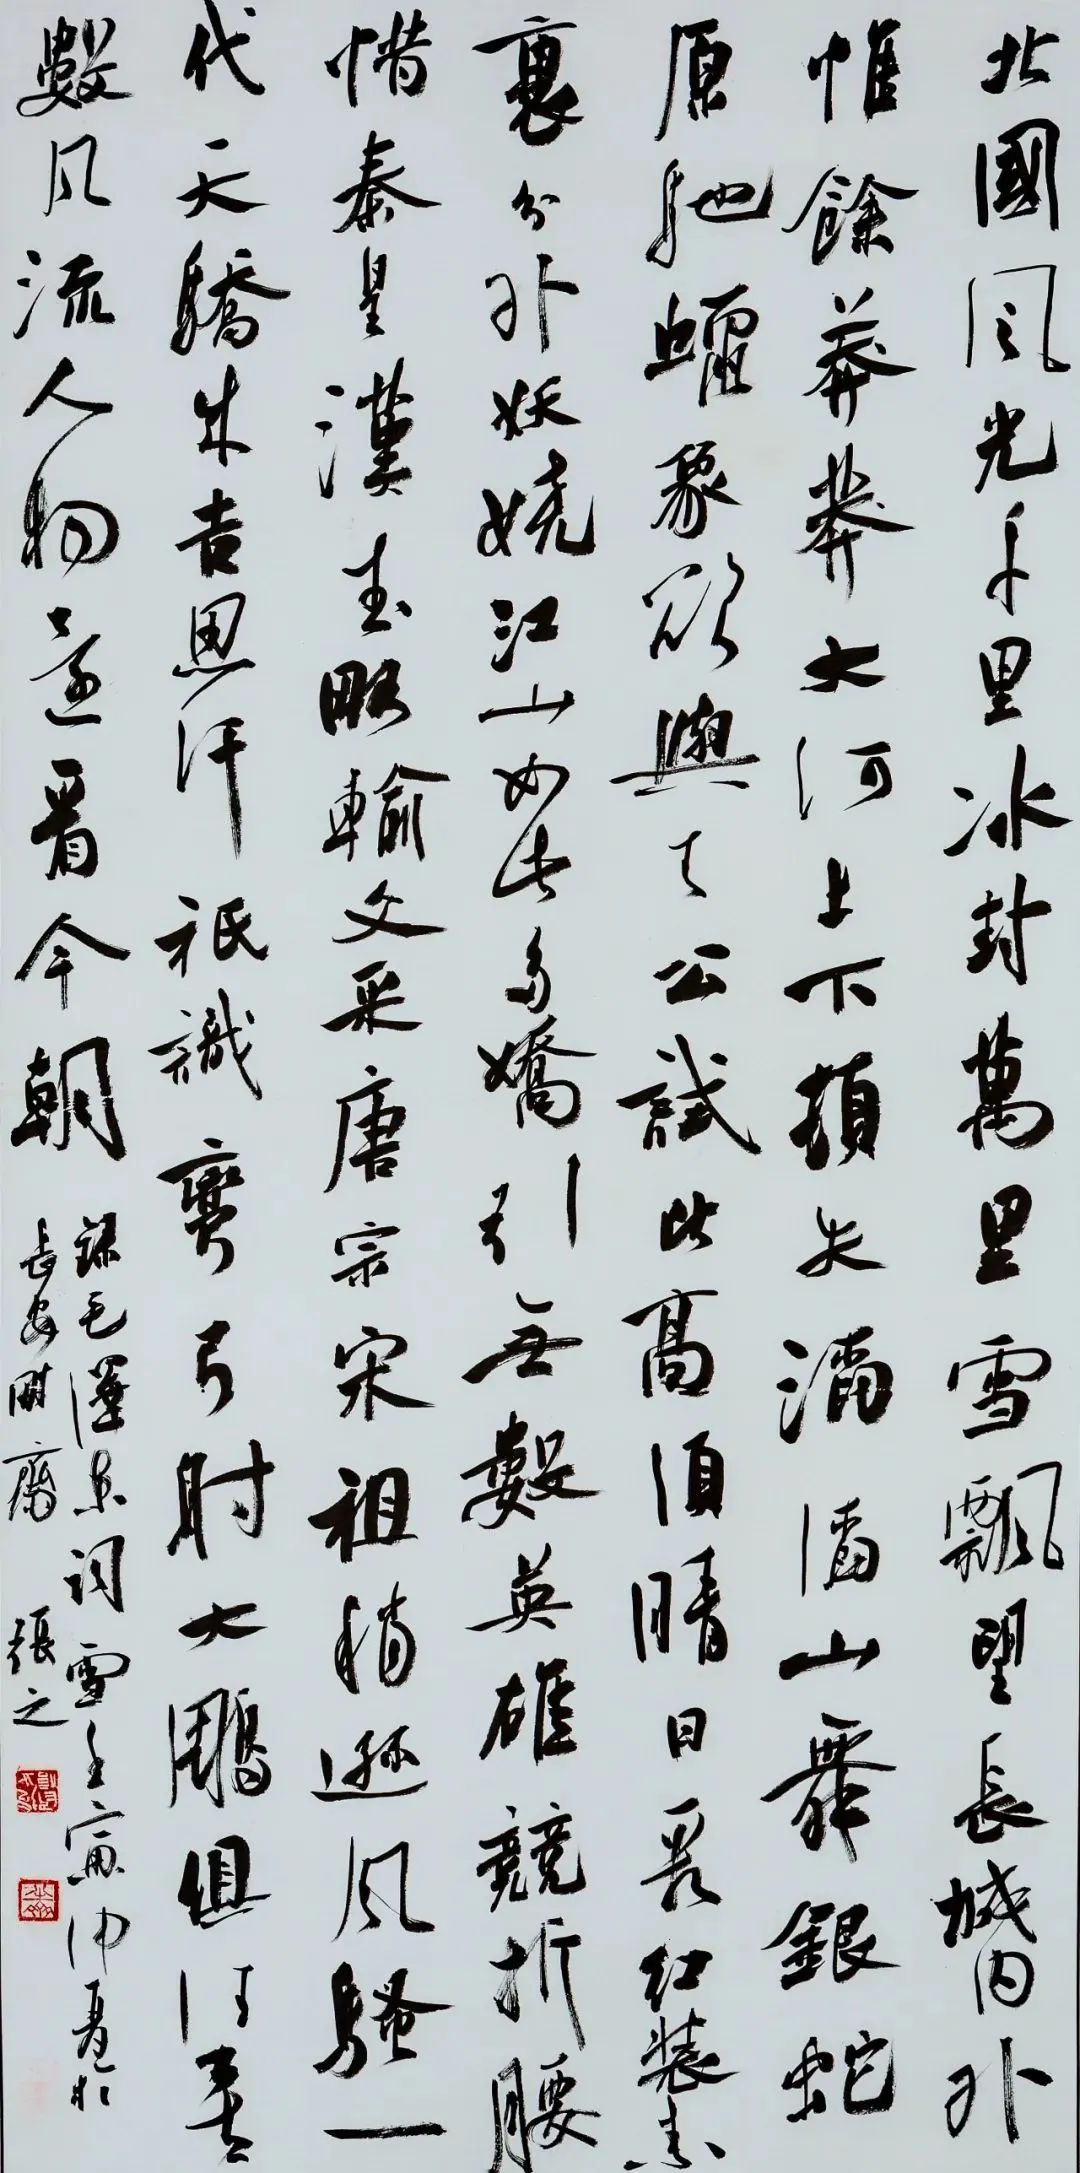 北國風光千里冰封萬里雪飄望長城內外
惟餘莽莽大河上下頓失滔滔山舞銀蛇
原馳蠟象欲與天公試比高須晴日看紅裝素
裹分外妖嬈江山如此多嬌引無數英雄競折腰
惜秦皇漢武略輸文采唐宗宋祖稍遜風騷一
代天驕成吉思汗祇識彎弓射大鵰俱往矣
數風流人物還看今朝
錄毛澤東詞雪壬寅仲夏於
長安齋張之